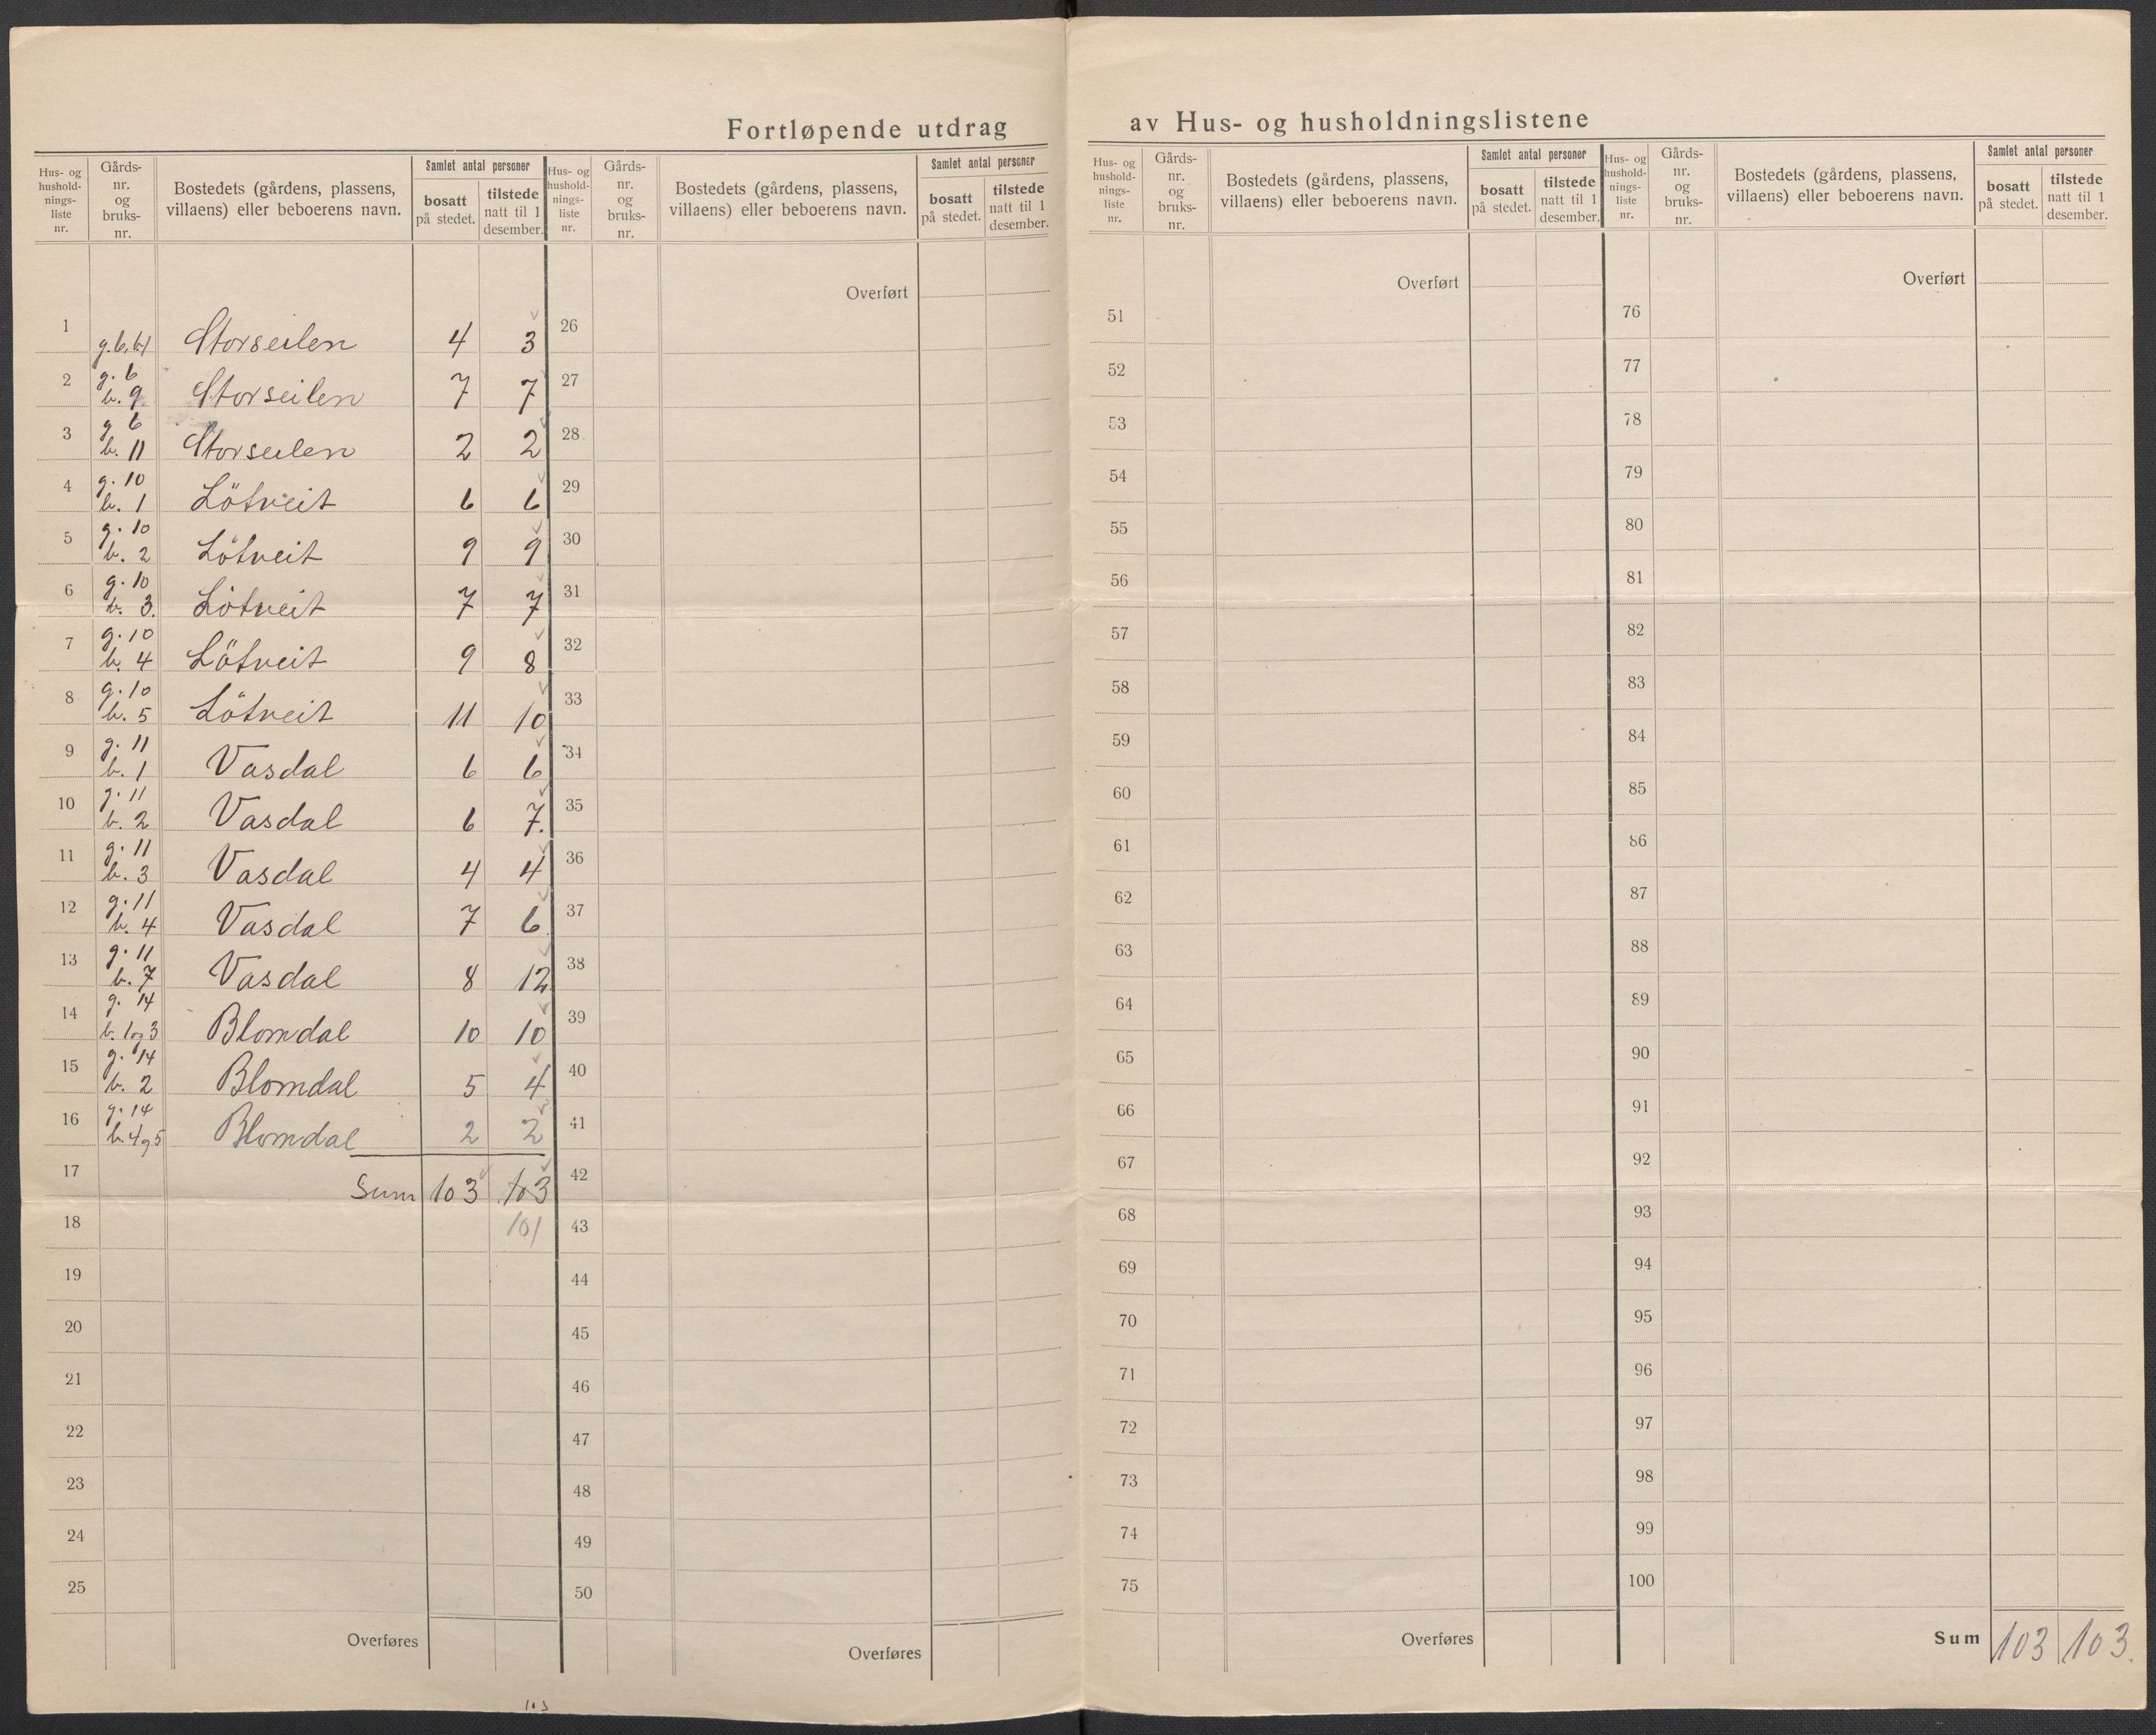 Fortløpende utdrag av Hus- og husholdningslistene
Hus- og hushold-nings-liste nr. Gårds-nr. og bruks-nr. Bostedets (gårdens, plassens, villaens) eller beboerens navn. Samlet antal personer bosatt på stedet. tilstede natt til 1 desember.
1 g. 6, b. 1 Storseilen 4 3
2 g. 6 b. 9 Storseilen 7 7
3 g. 6 b. 11 Storseilen 2 2
4 g. 10 b. 1 Lötveit 6 6
5 g. 10 b. 2 Lötveit 9 9
6 g. 10 b. 3. Lötveit 7 7
7 g. 10 b. 4 Lötveit 9 8
8 g. 10 b. 5 Lötveit 11 10
9 g. 11 b. 1 Vasdal 6 6
10 g. 11 b. 2 Vasdal 6 7.
11 g. 11 b. 3 Vasdal 4 4
12 g. 11 b. 4 Vasdal 7 6
13 g. 11 b. 7 Vasdal 8 12
14 g. 14 b. 1 og 3 Blomdal 10 10
15 g. 14 b. 2 Blomdal 5 4
16 g. 14 b. 4 og 5 Blomdal 2 2
17 Sum 103 103
18 101
19
20
21
22
23
24
25
Overføres
Hus- og hushold-nings-liste nr. Gårds-nr. og bruks-nr. Bostedets (gårdens, plassens, villaens) eller beboerens navn. Samlet antal personer bosatt på stedet. tilstede natt til 1 desember.
Overført
26
27
28
29
30
31
32
33
34
35
36
37
38
39
40
41
42
43
44
45
46
47
48
49
50
Overføres
Hus- og hushold-nings-liste nr. Gårds-nr. og bruks-nr. Bostedets (gårdens, plassens, villaens) eller beboerens navn. Samlet antal personer bosatt på stedet. tilstede natt til 1 desember.
Overført
51
52
53
54
55
56
57
58
59
60
61
62
63
64
65
66
67
68
69
70
71
72
73
74
75
Overføres
Hus- og hushold-nings-liste nr. Gårds-nr. og bruks-nr. Bostedets (gårdens, plassens, villaens) eller beboerens navn. Samlet antal personer bosatt på stedet. tilstede natt til 1 desember.
Overført
76
77
78
79
80
81
82
83
84
85
86
87
88
89
90
91
92
93
94
95
96
97
98
99
100
Sum 103 103.
103